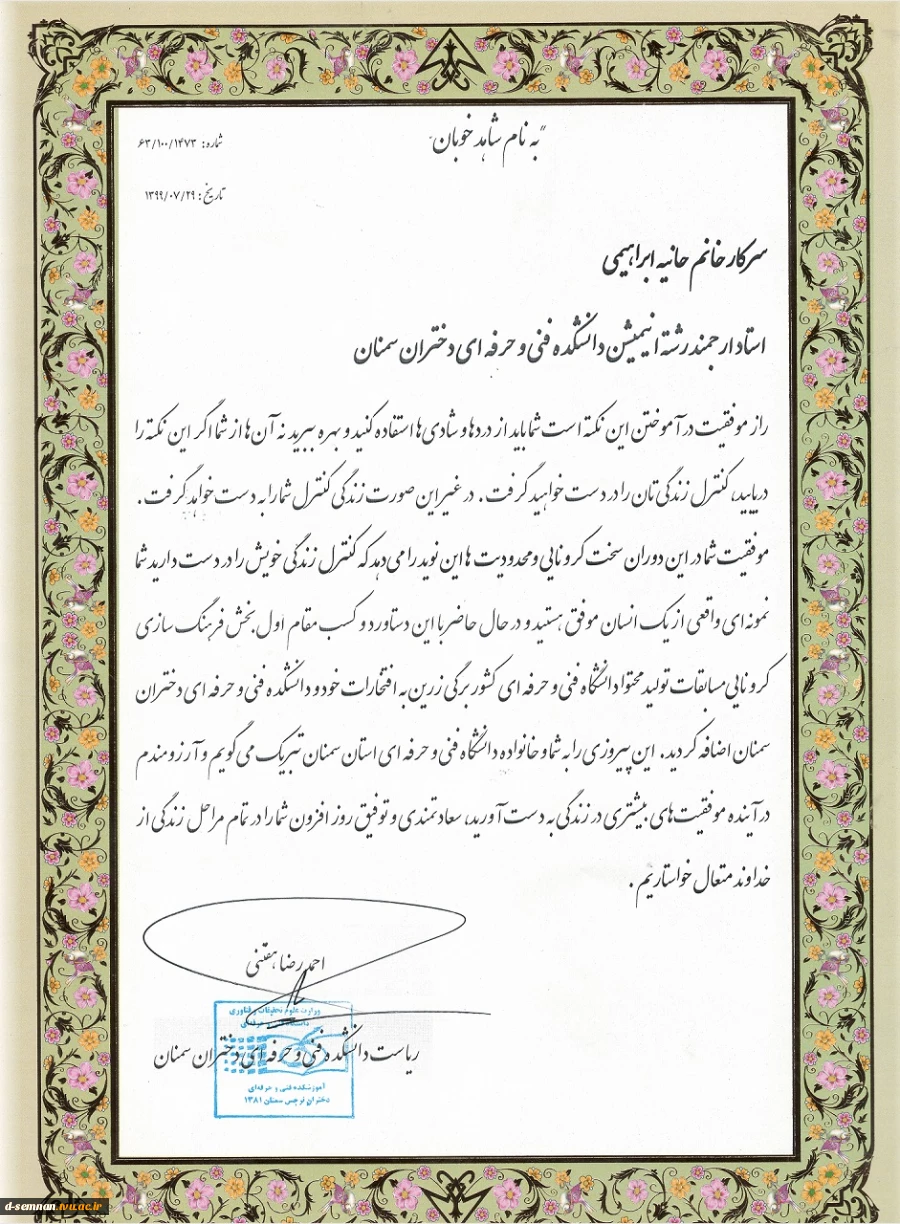 "به نام شاهد خوبان"
شماره: ۶۳/۱۰۰/۱۴۷۳
تاریخ: ۱۳۹۹/۰۷/۲۹
سرکار خانم حانیه ابراهیمی
استاد ارجمند رشته انیمیشن دانشکده فنی و حرفه ای دختران سمنان
راز موفقیت در آموختن این نکته است شما باید از دردها و شادی ها استفاده کنید و بهره ببرید نه آن ها از شما اگر این نکته را
دریابید، کنترل زندگی تان را در دست خواهید گرفت. در غیر این صورت زندگی کنترل شما را به دست خواهد گرفت.
موفقیت شما در این دوران سخت کرونایی و محدودیت ها این نوید را می دهد که کنترل زندگی خویش را در دست دارید شما
نمونه ای واقعی از یک انسان موفق هستید و در حال حاضر با این دستاورد و کسب مقام اول بخش فرهنگ سازی
کرونایی مسابقات تولید محتوا دانشگاه فنی و حرفه ای کشور برگی زرین به افتخارات خود و دانشکده فنی و حرفه ای دختران
سمنان اضافه کردید. این پیروزی را به شما و خانواده دانشگاه فنی و حرفه ای استان سمنان تبریک می گویم و آرزومندم
در آینده موفقیت های بیشتری در زندگی به دست آورید، سعادتمندی و توفیق روز افزون شما را در تمام مراحل زندگی از
خداوند متعال خواستاریم.
احمدرضا هفتنی
وزارت علوم تحقیقات و فناوری
دانشگاه فنی و حرفه‌ای
ریاست دانشکده فنی و حرفه ای دختران سمنان
آموزشکده فنی و حرفه‌ای
دختران نرجس سمنان ۱۳۸۱
d-semnan.tvu.ac.ir